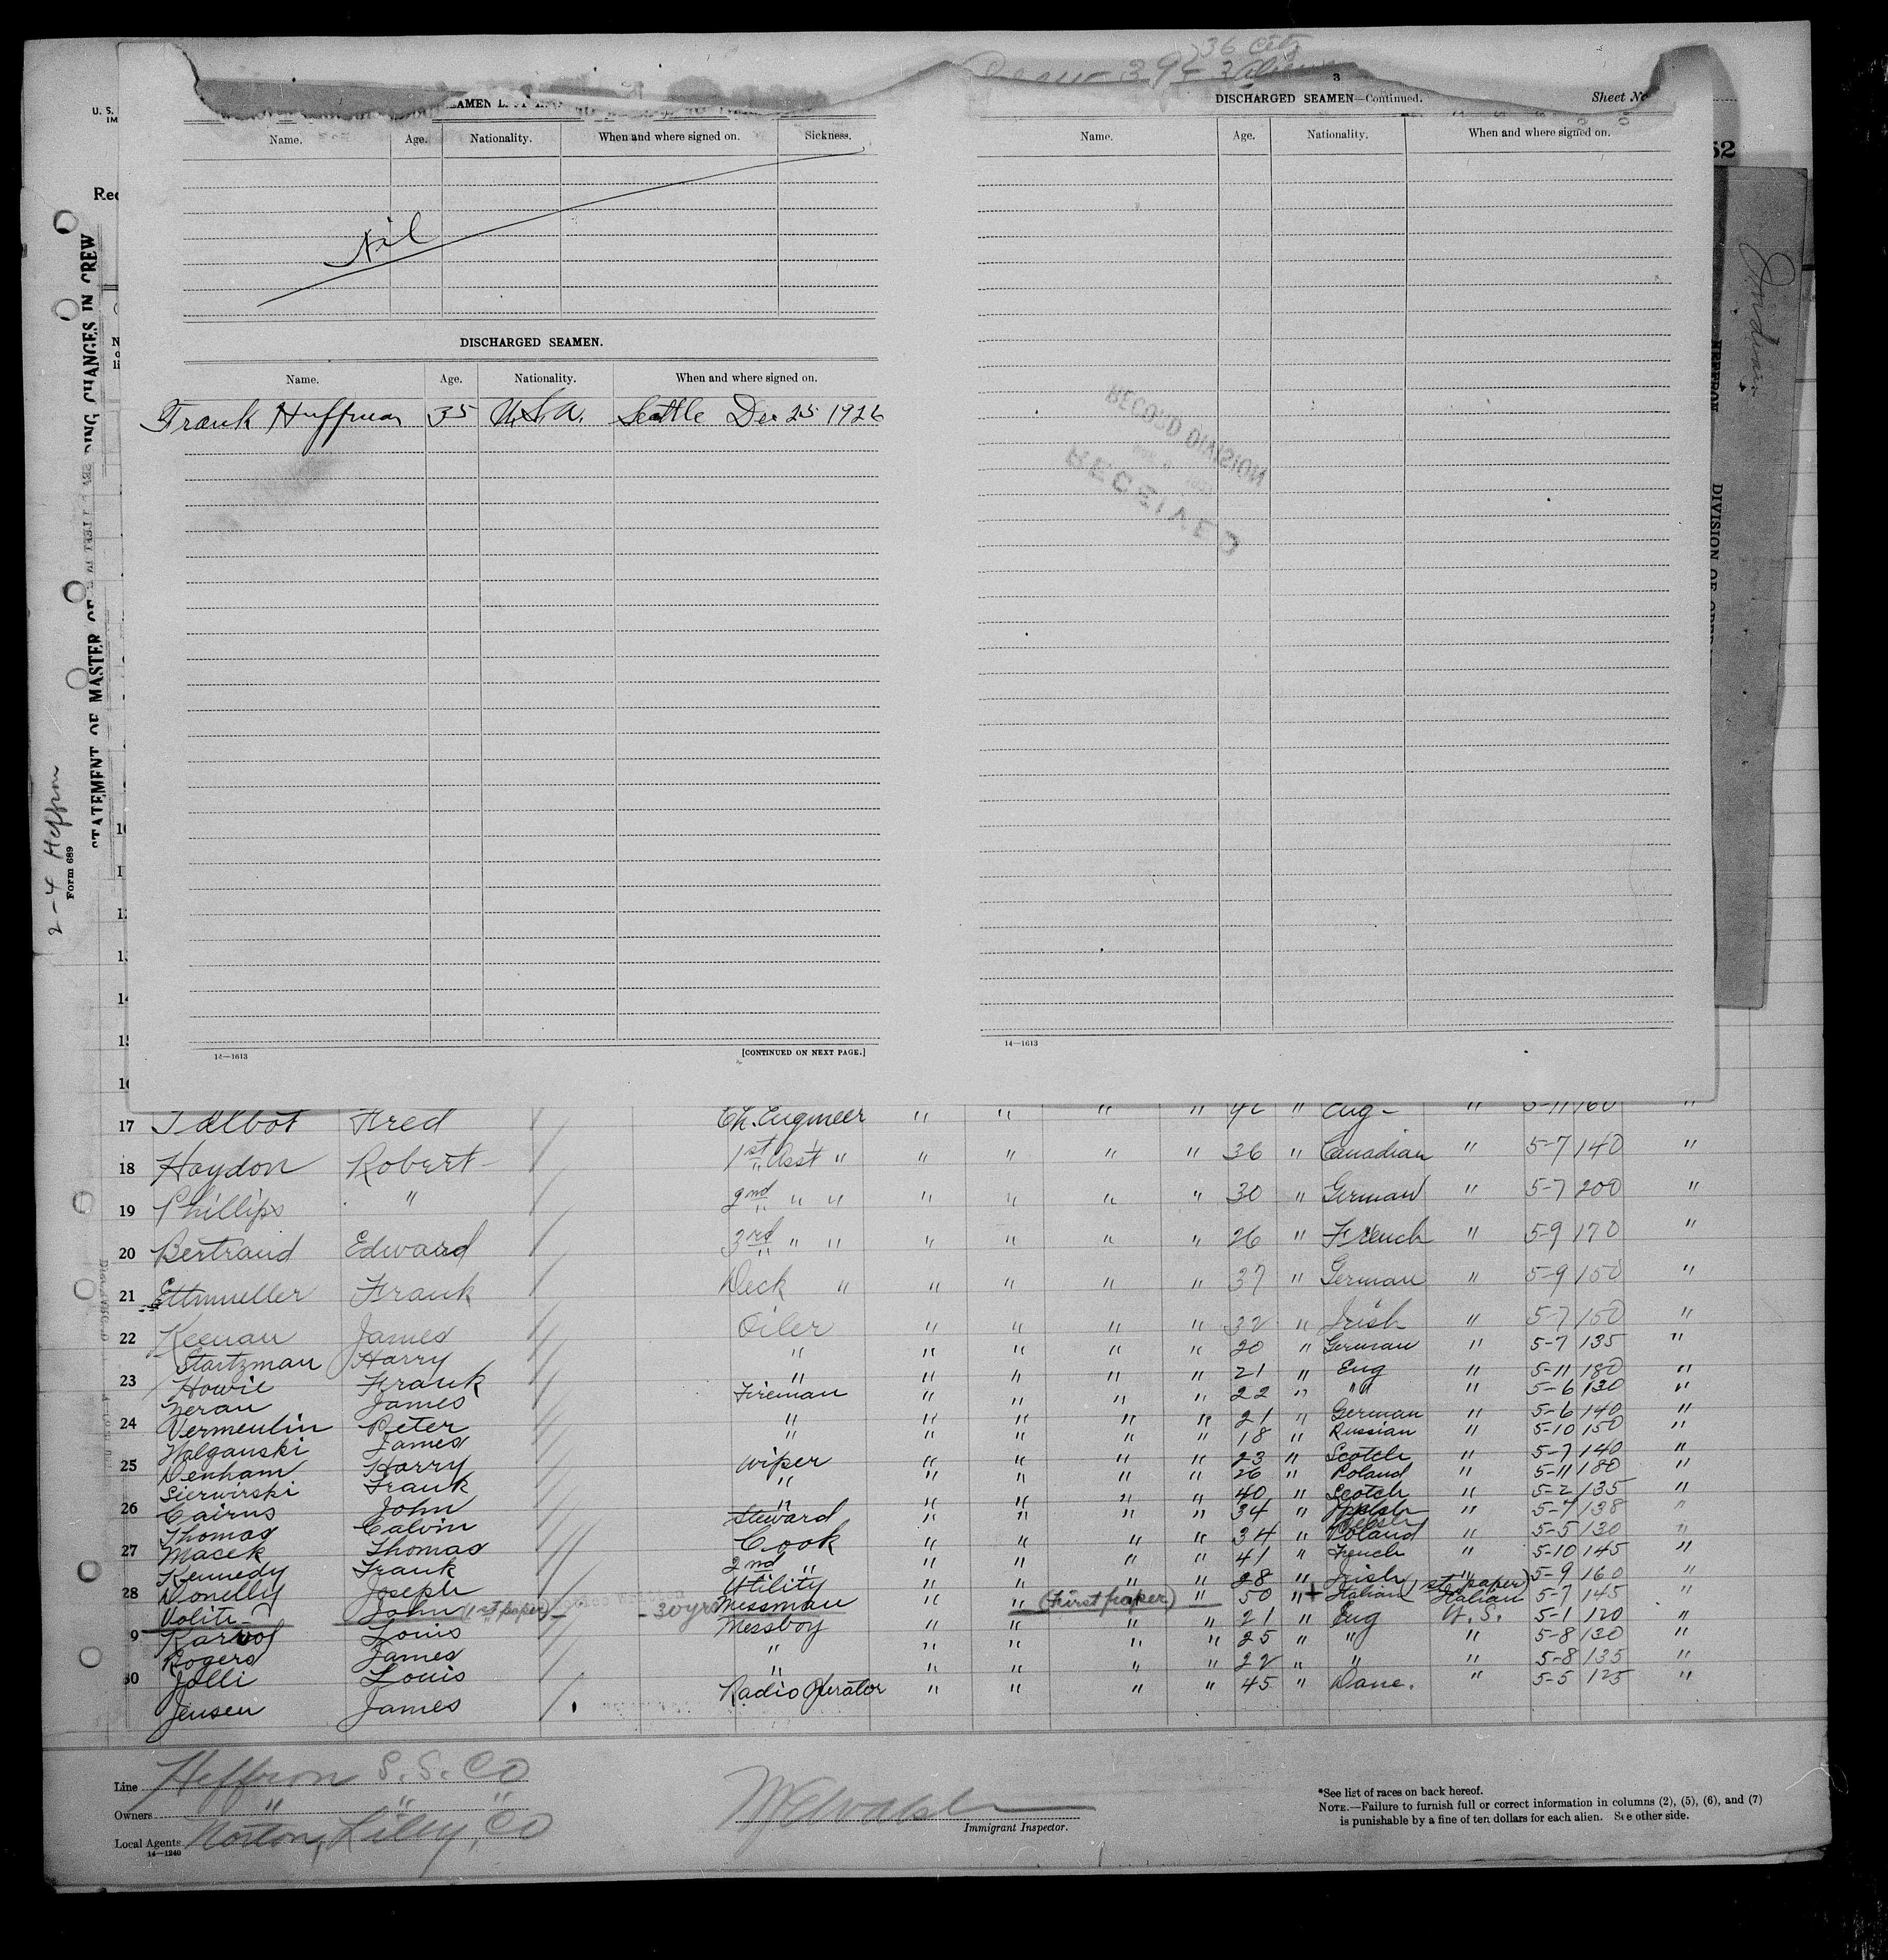 36 City
Crew 39 { 3 Aliens
3
DISCHARGED SEAMEN—Continued.
Sheet No
U. S.
IM
Name. Age. Nationality. When and where signed on. Sickness.
Name. Age. Nationality. When and where signed on.
52
Nil
DISCHARGED SEAMEN.
Name. Age. Nationality. When and where signed on.
Frank Huffman 35 U.S.A. Seattle Dec 25 1926
SECOND DIVISION
RECEIVED
STATEMENT OF MASTER OF
RING CHANGES IN CREW
2-4 Heffron
Form 689
DIVISION OF
14—1613 [CONTINUED ON NEXT PAGE.]
14—1613
17 Talbot Fred Ch. Engineer " " " " 42 " Eng - " 5-11 160 "
18 Haydon Robert 1st Asst " " " " " 36 " Canadian " 5-7 140 "
19 Phillips " 2nd " " " " " " 30 " German " 5-7 200 "
20 Bertrand Edward 3rd " " " " " " 26 " French " 5-9 170 "
21 Ettmueller Frank Deck " " " " " 37 " German " 5-9 150 "
22 Keenan James Oiler " " " " 32 " Irish " 5-7 150 "
Startzman Harry " " " " " 20 " German " 5-7 135 "
23 Howie Frank " " " " " 21 " Eng " 5-11 180 "
Zerau James Fireman " " " " 22 " " " 5-6 130 "
24 Vermeulin Peter " " " " " 21 " German " 5-6 140 "
Walganski James " " " " " 18 " Russian " 5-10 150 "
25 Denham Harry Wiper " " " " 23 " Scotch " 5-7 140 "
Sierwirski Frank " " " " " 26 " Poland " 5-11 180 "
26 Cairns John " " " " " 40 " Scotch " 5-2 135 "
Thomas Calvin Steward " " " " 34 " " 5-7 138 "
27 Macek Thomas Cook " " " " 34 " Poland " 5-5 130 "
Kennedy Frank 2nd " " " " " 41 " French " 5-10 145 "
28 Donelly Joseph Utility " " " " 28 " Irish " 5-9 160 "
Voliti John (1st paper) - 30 yrs Messman " (First paper) " 50 " + Italian (1st paper) Italian 5-7 145 "
9 Karvol Louis Messboy " " " " 21 " Eng U.S. 5-1 120 "
Rogers James " " " " " 25 " " " 5-8 130 "
30 Jolli Louis " " " " " 22 " " " 5-8 135 "
Jensen James Radio Operator " " " " 45 " Dane. " 5-5 125 "
Line Heffron S.S. Co
Owners " " "
Local Agents Norton, Lilly, Co
14—1240
Immigrant Inspector.
*See list of races on back hereof.
NOTE.—Failure to furnish full or correct information in columns (2), (5), (6), and (7)
is punishable by a fine of ten dollars for each alien. See other side.